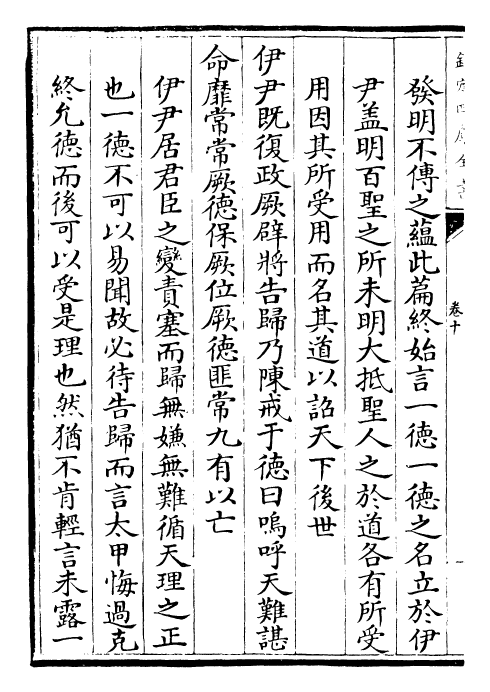 欽定四庫全書
卷十
發明不傳之蘊此篇終始言一德一德之名立於伊
尹盖明百聖之所未明大抵聖人之於道各有所受
用因其所受用而名其道以詔天下後世
伊尹既復政厥辟將告歸乃陳戒于德曰嗚呼天難諶
命靡常常厥德保厥位厥德匪常九有以亡
伊尹居君臣之變責塞而歸無嫌無難循天理之正
也一德不可以易聞故必待告歸而言太甲悔過克
終允德而後可以受是理也然猶不肯輕言未露一